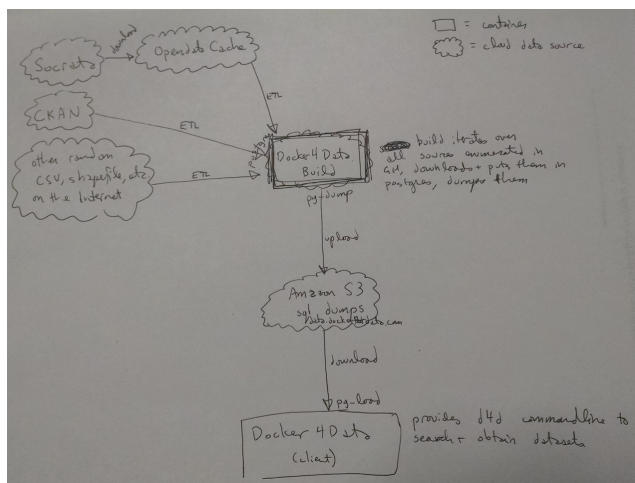 = container
= cloud data source
download
Socrata
Opendata Cache
ETL
CKAN
ETL
other random
CSV, shapefile, etc
on the Internet
ETL
postgres
Docker4Data
Build
pg-dump
build iterates over
all sources enumerated in
GH, downloads + puts them in
postgres, dumps them
upload
Amazon S3
sql dumps
data.dockerfordata.com
download
pg-load
Docker 4 Data
(client)
provides d4d commandline to
search + obtain datasets